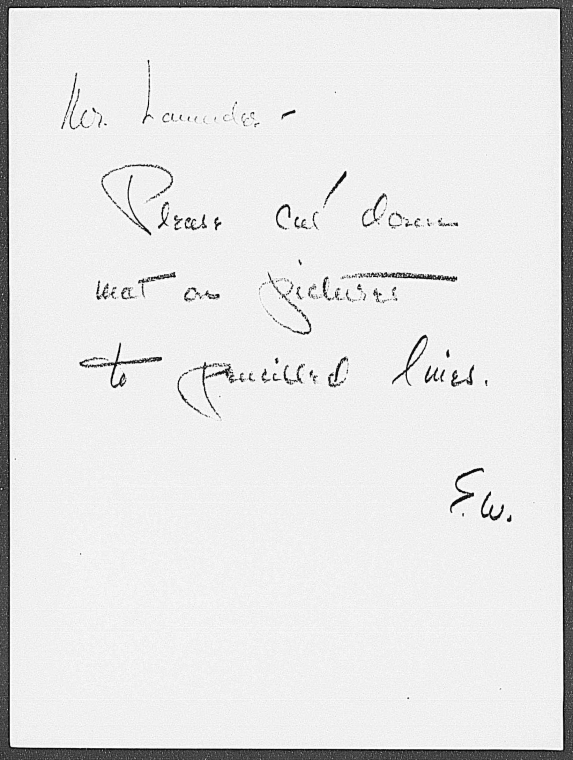 Mr. Launder -
Please cut down
mat on pictures
to pencilled lines.
E.W.